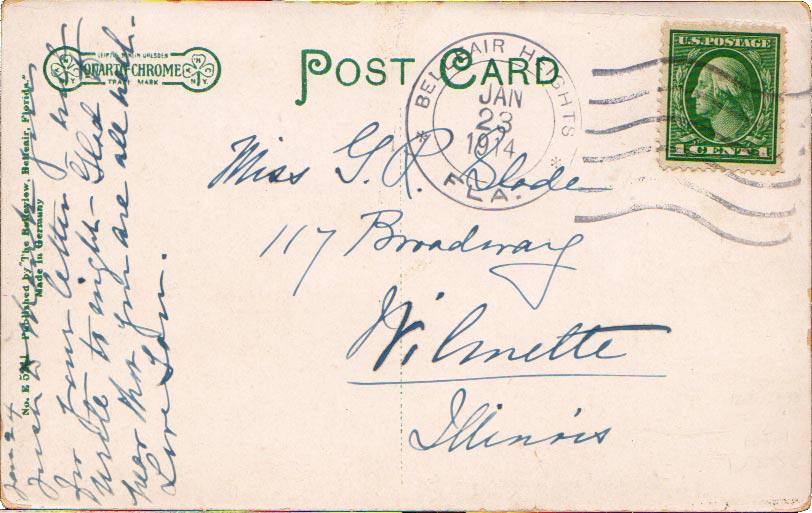 LEIPZIG-BERLIN-DRESDEN
QUARTO-CHROME
TRADE MARK
POST CARD
BELLEAIR HEIGHTS
JAN
23
1914
FLA.
U.S. POSTAGE
1 CENT 1
Miss G. R. Slade
117 Broadway
Wilmette
Illinois
No. E Published by "The Belleview, Belleair, Florida."
Made in Germany
Jan 24
Just to thank you
for your letter.
write to night - Glad to
hear that you are all well.
Love